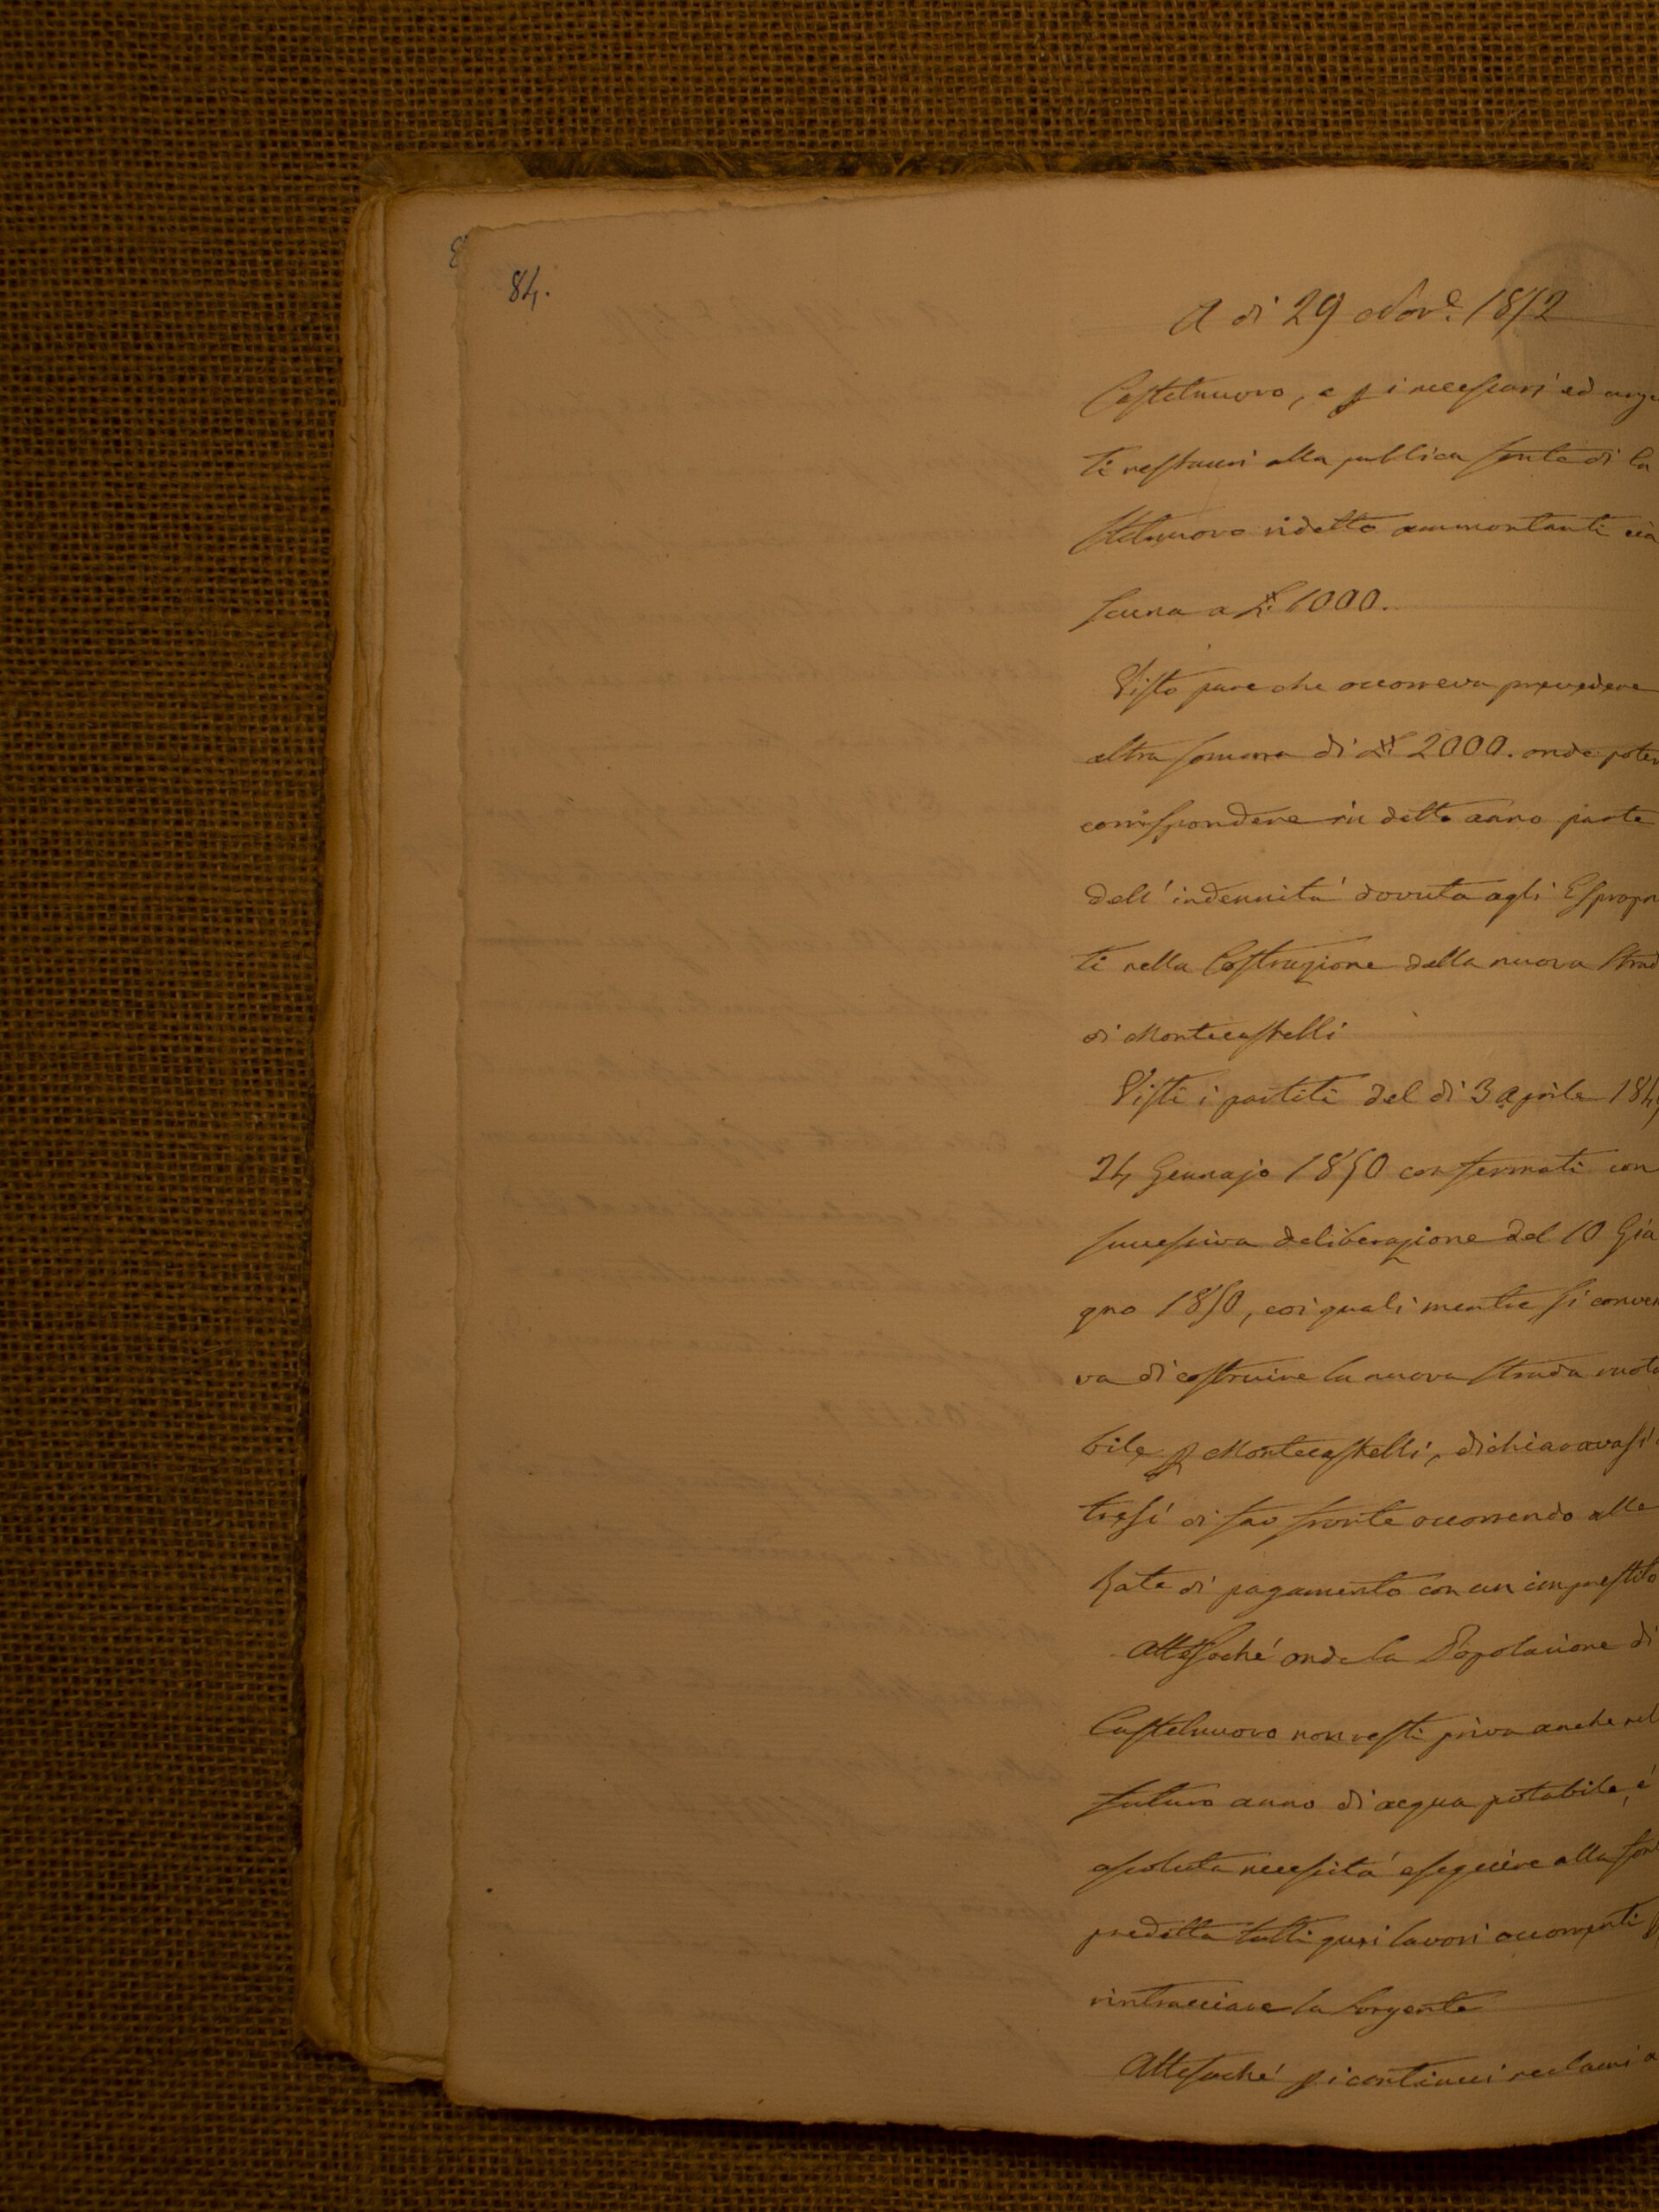 84.
A di 29 Nov.e 1852
Castelnuovo, e p i necessarj ed urge
ti restauri alla publica fonte di Ca
stelnuovo ridetto ammontanti cia
scuna a L. 1000.
Visto pure che occorreva prevedere
altra somma di L. 2000. onde poter
corrispondere in detto anno parte
dell' indennità dovuta agli Espropr
ti nella Costruzione della nuova Strad
di Montecastelli
Visti i partiti del di 3 Aprile 184
24 Gennajo 1850 confermati con
successiva deliberazione del 10 Giu
gno 1850, coi quali mentre si conven
va di costruire la nuova Strada ruota
bile p Montecastelli, dichiaravasi
tresi di far fronte occorrendo alle
Rate di pagamento con un imprestito
Attesoché onde la Popolazione di
Castelnuovo non resti priva anche nel
futuro anno di acqua potabile, é
assoluta necessità eseguire alla font
predetta tutti quei lavori occorrenti p
rintracciare la Sorgente
Attesoché p i continui reclami a